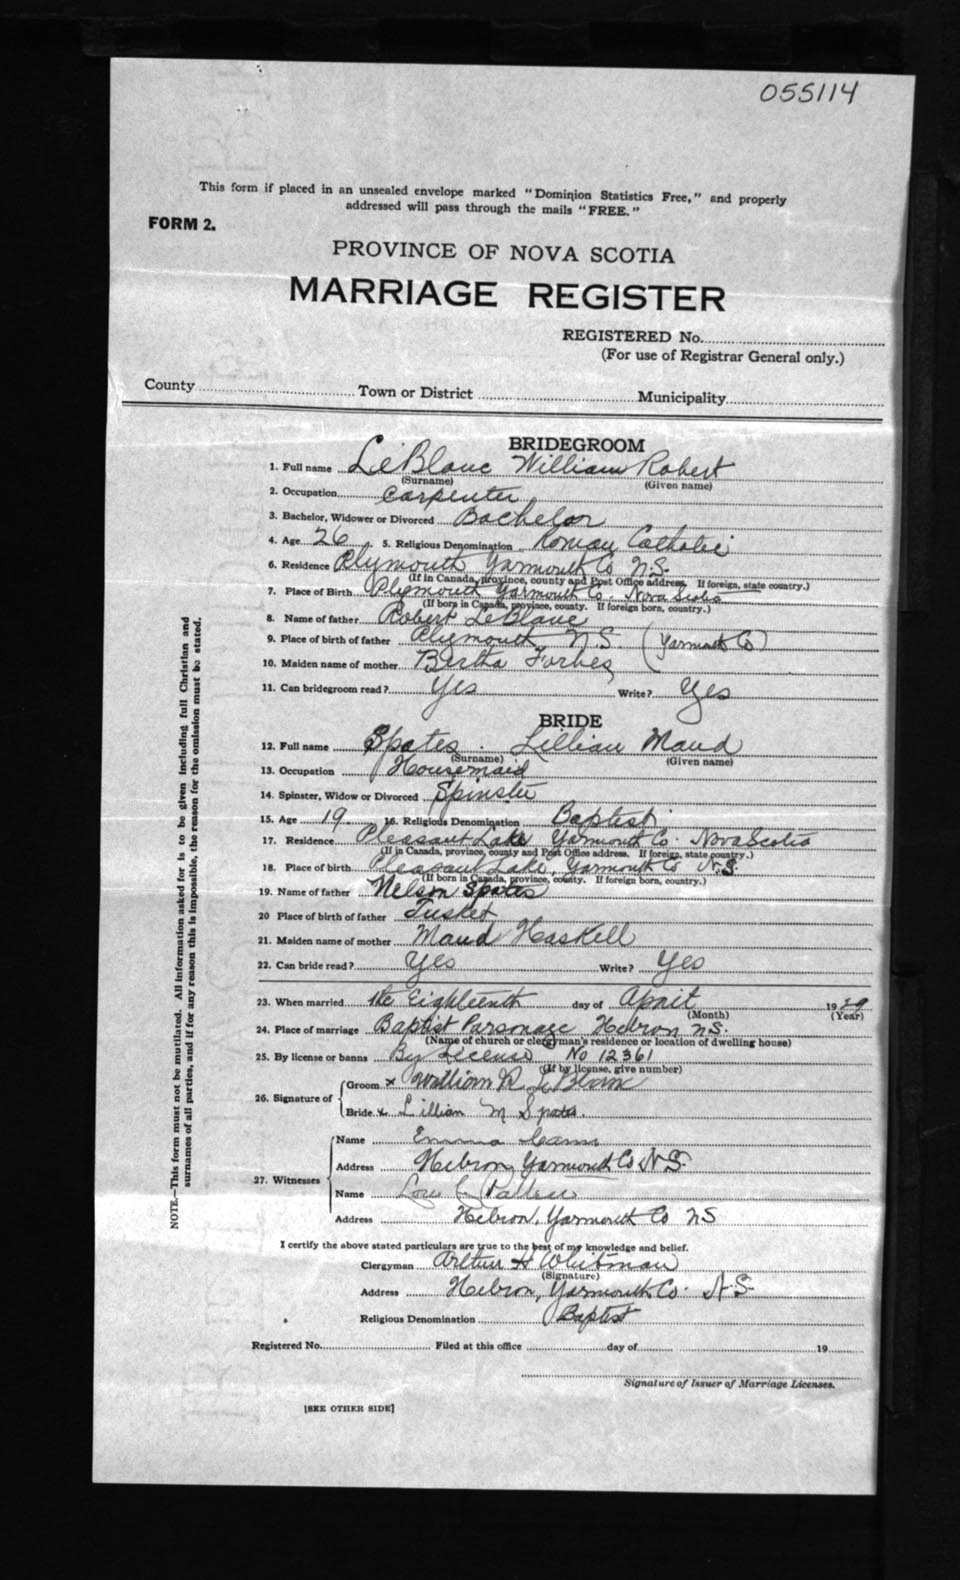 055114
This form if placed in an unsealed envelope marked "Dominion Statistics Free," and properly
addressed will pass through the mails "FREE."
FORM 2.
PROVINCE OF NOVA SCOTIA
MARRIAGE REGISTER
REGISTERED No.
(For use of Registrar General only.)
County Town or District Municipality
BRIDEGROOM
1. Full name LeBlanc William Robert
(Surname) (Given name)
2. Occupation Carpenter
3. Bachelor, Widower or Divorced Bachelor
4. Age 26 5. Religious Denomination Roman Catholic
6. Residence Plymouth Yarmouth Co N.S.
(If in Canada, province, county and Post Office address. If foreign, state country.)
7. Place of Birth Plymouth Yarmouth Co. Nova Scotia
(If born in Canada, province, county. If foreign born, country.)
8. Name of father Robert LeBlanc
9. Place of birth of father Plymouth N.S. (Yarmouth Co)
10. Maiden name of mother Bertha Forbes
11. Can bridegroom read? Yes Write? Yes
BRIDE
12. Full name Spates. Lillian Maud
(Surname) (Given name)
13. Occupation Housemaid
14. Spinster, Widow or Divorced Spinster
15. Age 19 16. Religious Denomination Baptist
17. Residence Pleasant Lake Yarmouth Co. Nova Scotia
(If in Canada, province, county and Post Office address. If foreign, state country.)
18. Place of birth Pleasant Lake, Yarmouth Co N.S.
(If born in Canada, province, county. If foreign born, country.)
19. Name of father Nelson Spates
20 Place of birth of father Tusket
21. Maiden name of mother Maud Haskell
22. Can bride read? Yes Write? Yes
23. When married the Eighteenth day of April 1929
(Month) (Year)
24. Place of marriage Baptist Parsonage Hebron N.S.
(Name of church or clergyman's residence or location of dwelling house)
25. By license or banns By License No 12361
(If by license, give number)
26. Signature of
Groom x William R LeBlanc
Bride x Lillian M Spates.
27. Witnesses
Name Emma
Address Hebron Yarmouth Co N.S.
Name
Address Hebron, Yarmouth Co NS
I certify the above stated particulars are true to the best of my knowledge and belief.
Clergyman Arthur H Whitman
(Signature)
Address Hebron, Yarmouth Co. N.S.
Religious Denomination Baptist
Registered No. Filed at this office day of 19
Signature of Issuer of Marriage Licenses.
[SEE OTHER SIDE]
NOTE.—This form must not be mutilated. All information asked for is to be given including full Christian and
surnames of all parties, and if for any reason this is impossible, the reason for the omission must be stated.